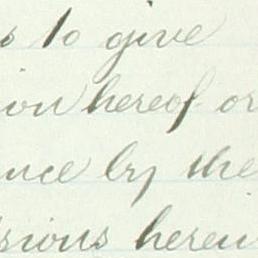 s to give
ion hereof or
nce by the
sions herein